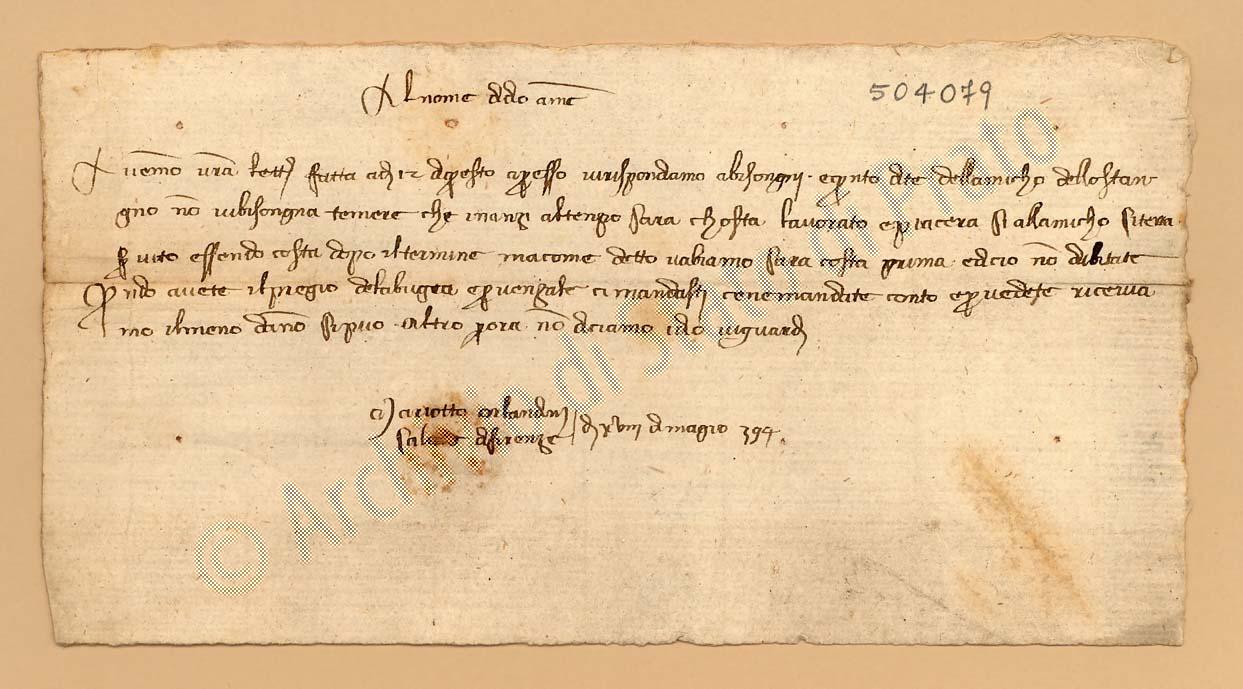 Al nome d dio ame
504079
Avemo vra lett fatta adi 12 d questo apresso virispondamo abisongni e quanto dite dellamicho dellostan
gno no vibisongna temere che inanzi altenpo sara chosta lavorato e piacera si allamicho si terra
essendo costa dopo il termine ma come detto vabiamo sara costa prima edi cio no dubitate
Quando avete il pregio dela bugea e provenzale ci mandasti cone mandate conto e provedete riceviа
mo il meno dano si puo altro per ora no diciamo idio vi guardi
ciavotto orlandini
salute d firenze
di xviii di magio 394
© Archivio di Stato di Prato